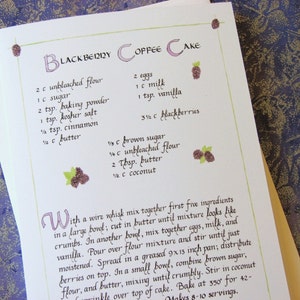 Blackberry Coffee Cake
2 c unbleached flour
1 c sugar
2 tsp. baking powder
1 tsp. kosher salt
¼ tsp. cinnamon
¼ c butter
2 eggs
1 c milk
1 tsp. vanilla
3½ c blackberries
½ c brown sugar
¼ c unbleached flour
2 Tbsp. butter
¼ c coconut
With a wire whisk mix together first five ingredients
in a large bowl; cut in butter until mixture looks like
crumbs. In another bowl, mix together eggs, milk, and
vanilla. Pour over flour mixture and stir until just
moistened. Spread in a greased 9x13 inch pan; distribute
berries on top. In a small bowl, combine brown sugar,
flour, and butter, mixing until crumbly. Stir in coconut
sprinkle over top of cake. Bake at 350° for 42-
Makes 8-10 servings.